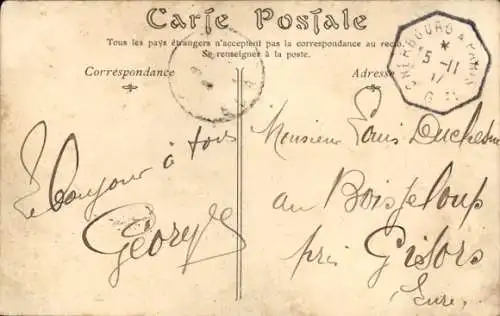 Carte Postale
Tous les pays étrangers n'acceptent pas la correspondance au recto.
Se renseigner à la poste.
Correspondance
Adresse
CHERBOURG A PARIS
*
5-11
Bonjour à tous
Georges
Monsieur Louis Duchesne
au Boisgeloup
près Gisors
Eure